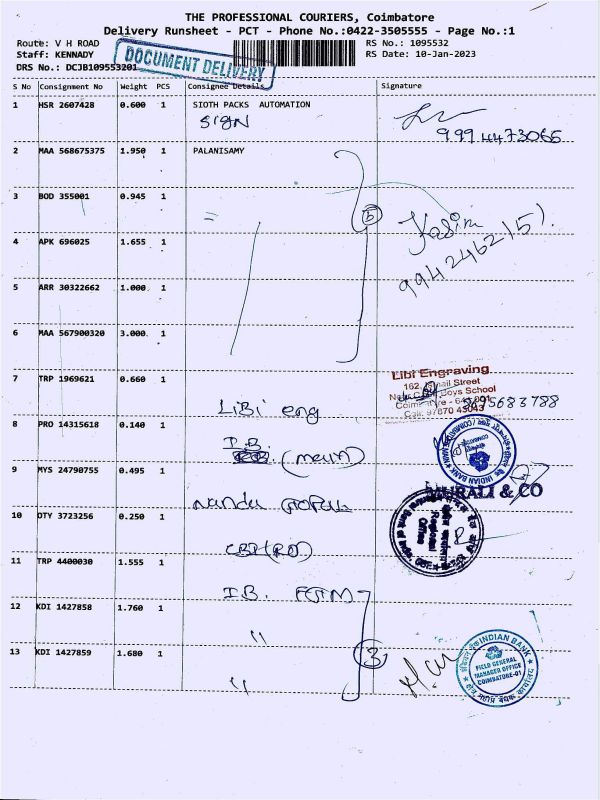 THE PROFESSIONAL COURIERS, Coimbatore
Delivery Runsheet - PCT - Phone No.:0422-3505555 - Page No.:1
Route: V H ROAD
RS No.: 1095532
Staff: KENNADY
RS Date: 10-Jan-2023
DRS No.: DCJB109553201
DOCUMENT DELIVERY
S No Consignment No Weight PCS Consignee Details Signature
1 HSR 2607428 0.600 1 SIOTH PACKS AUTOMATION
SIGN
9994473066
2 MAA 568675375 1.950 1 PALANISAMY
3 BOD 355001 0.945 1
5
Kasim
9942462151
4 APK 696025 1.655 1
5 ARR 30322662 1.000 1
6 MAA 567900320 3.000 1
7 TRP 1969621 0.660 1
Libi eng
Libi Engraving
Street
Boys School
Call: 97870 43043
8695683788
8 PRO 14315618 0.140 1
I.B. (main)
INDIAN BANK
9 MYS 24790755 0.495 1
Nandu Gopal
MURALI & CO
10 OTY 3723256 0.250 1
CBI(RO)
Central Bank of India
Regional Office
11 TRP 4400030 1.555 1
I.B. FGM
12 KDI 1427858 1.760 1
"
13 KDI 1427859 1.680 1
"
3
INDIAN BANK
FIELD GENERAL
MANAGER OFFICE
COIMBATORE-01